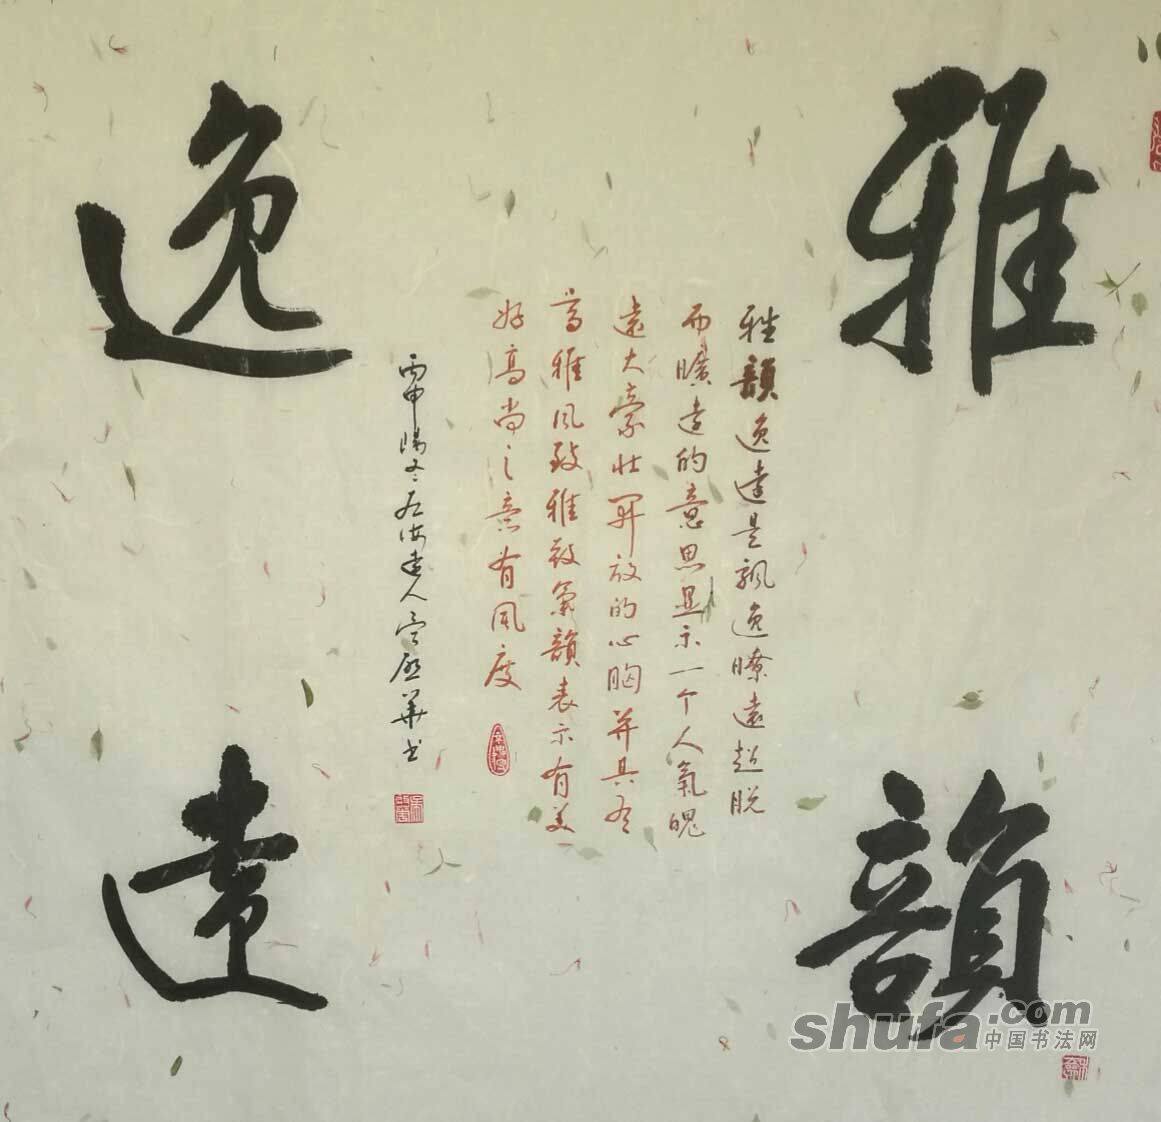 雅韻
逸遠
雅韻逸遠是飄逸瞭遠超脱
而曠達的意思显示一个人氣魄
遠大豪壮開放的心胸并具有
高雅风致雅致氣韻表示有美
好高尚之意有风度
丙申陽冬左海達人華书
shufa.com
中国书法网